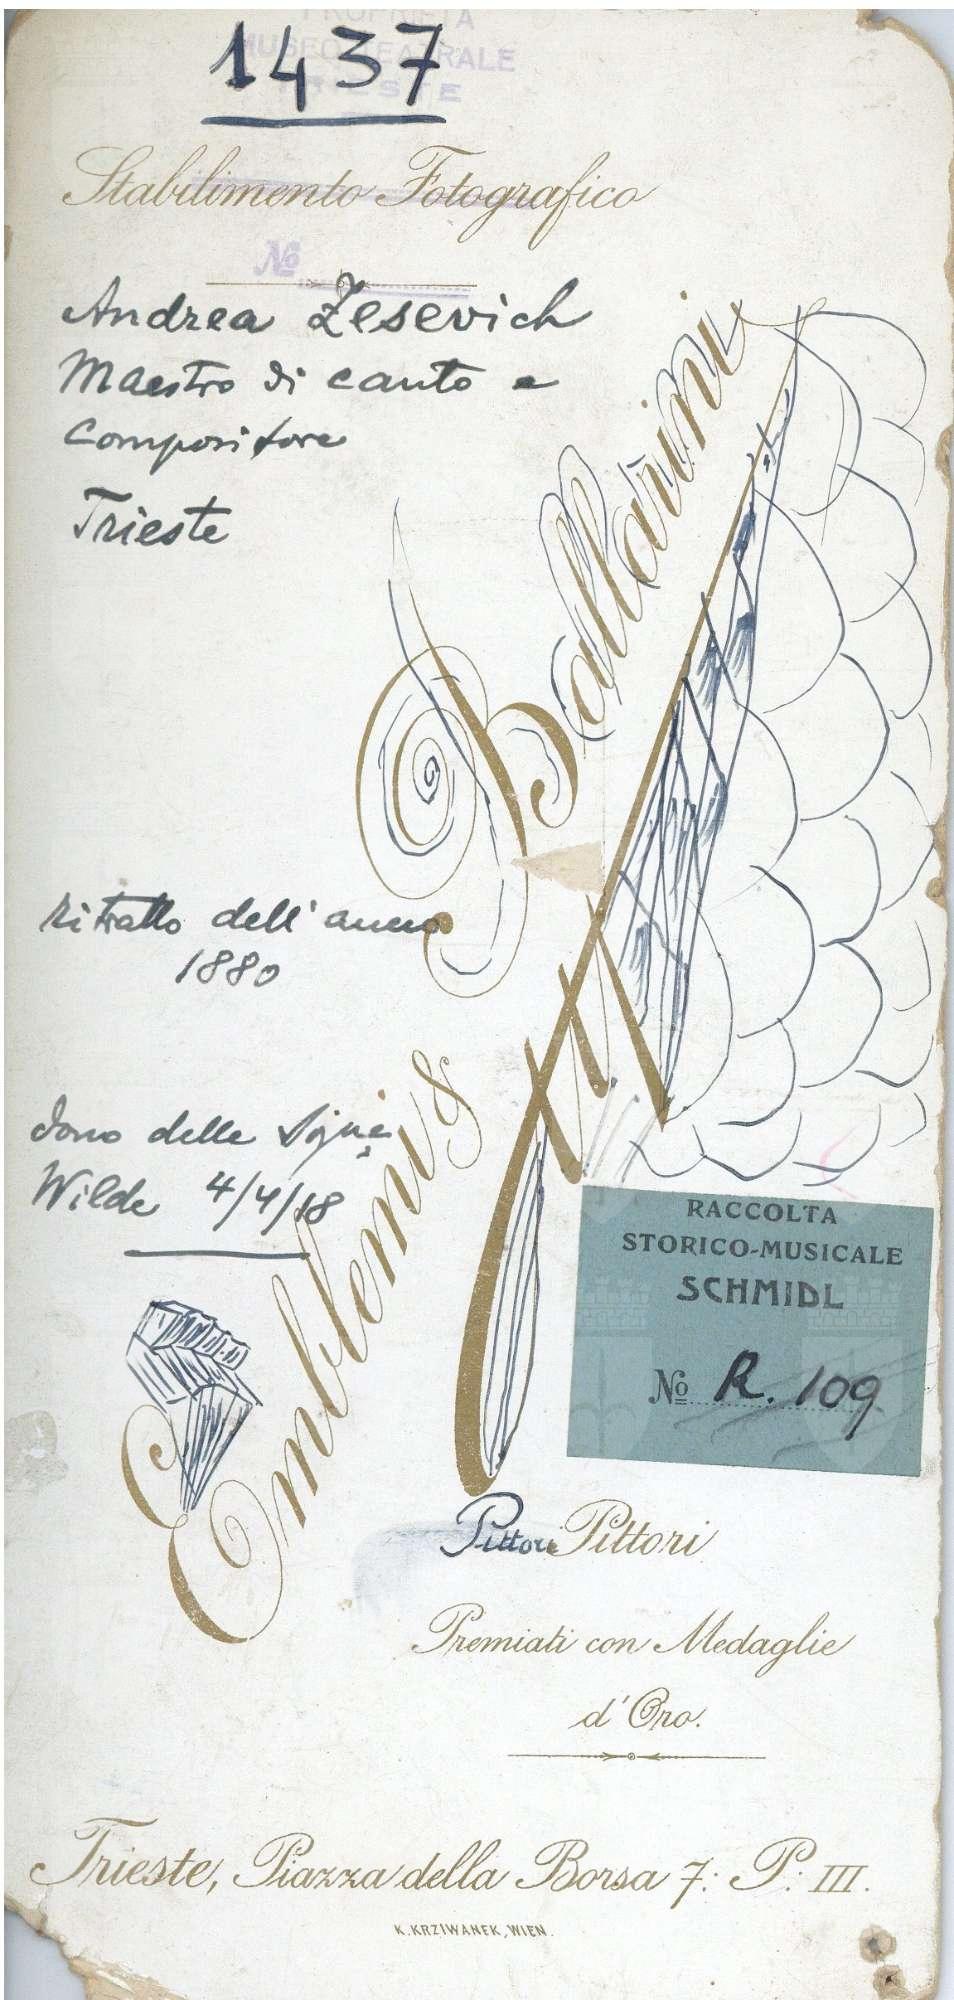 PROPRIETÀ
MUSEO TEATRALE
TRIESTE
1437
Stabilimento Fotografico
No
Andrea Zesevich
Maestro di canto e
compositore
Trieste
Ballarini
ritratto dell'anno
1880
dono delle Signe
Wilde 4/4/18
Emblemi &
RACCOLTA
STORICO-MUSICALE
SCHMIDL
No R. 109
Pittori Pittori
Premiati con Medaglie
d'Oro.
Trieste, Piazza della Borsa 7: P: III.
K. KRZIWANEK, WIEN.